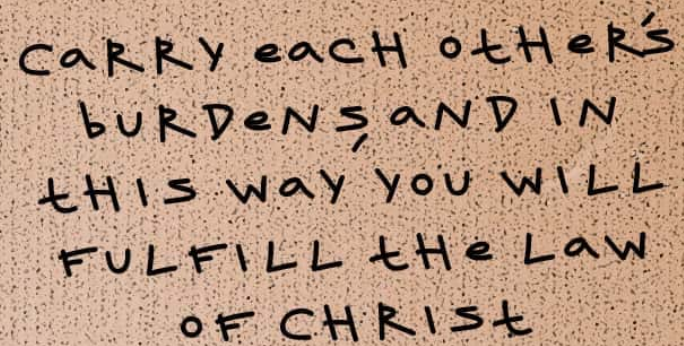 CaRRY eacH otHeR's
buRDeNs, aND IN
tHIs way you WILL
FULFILL tHe Law
oF CHRIst